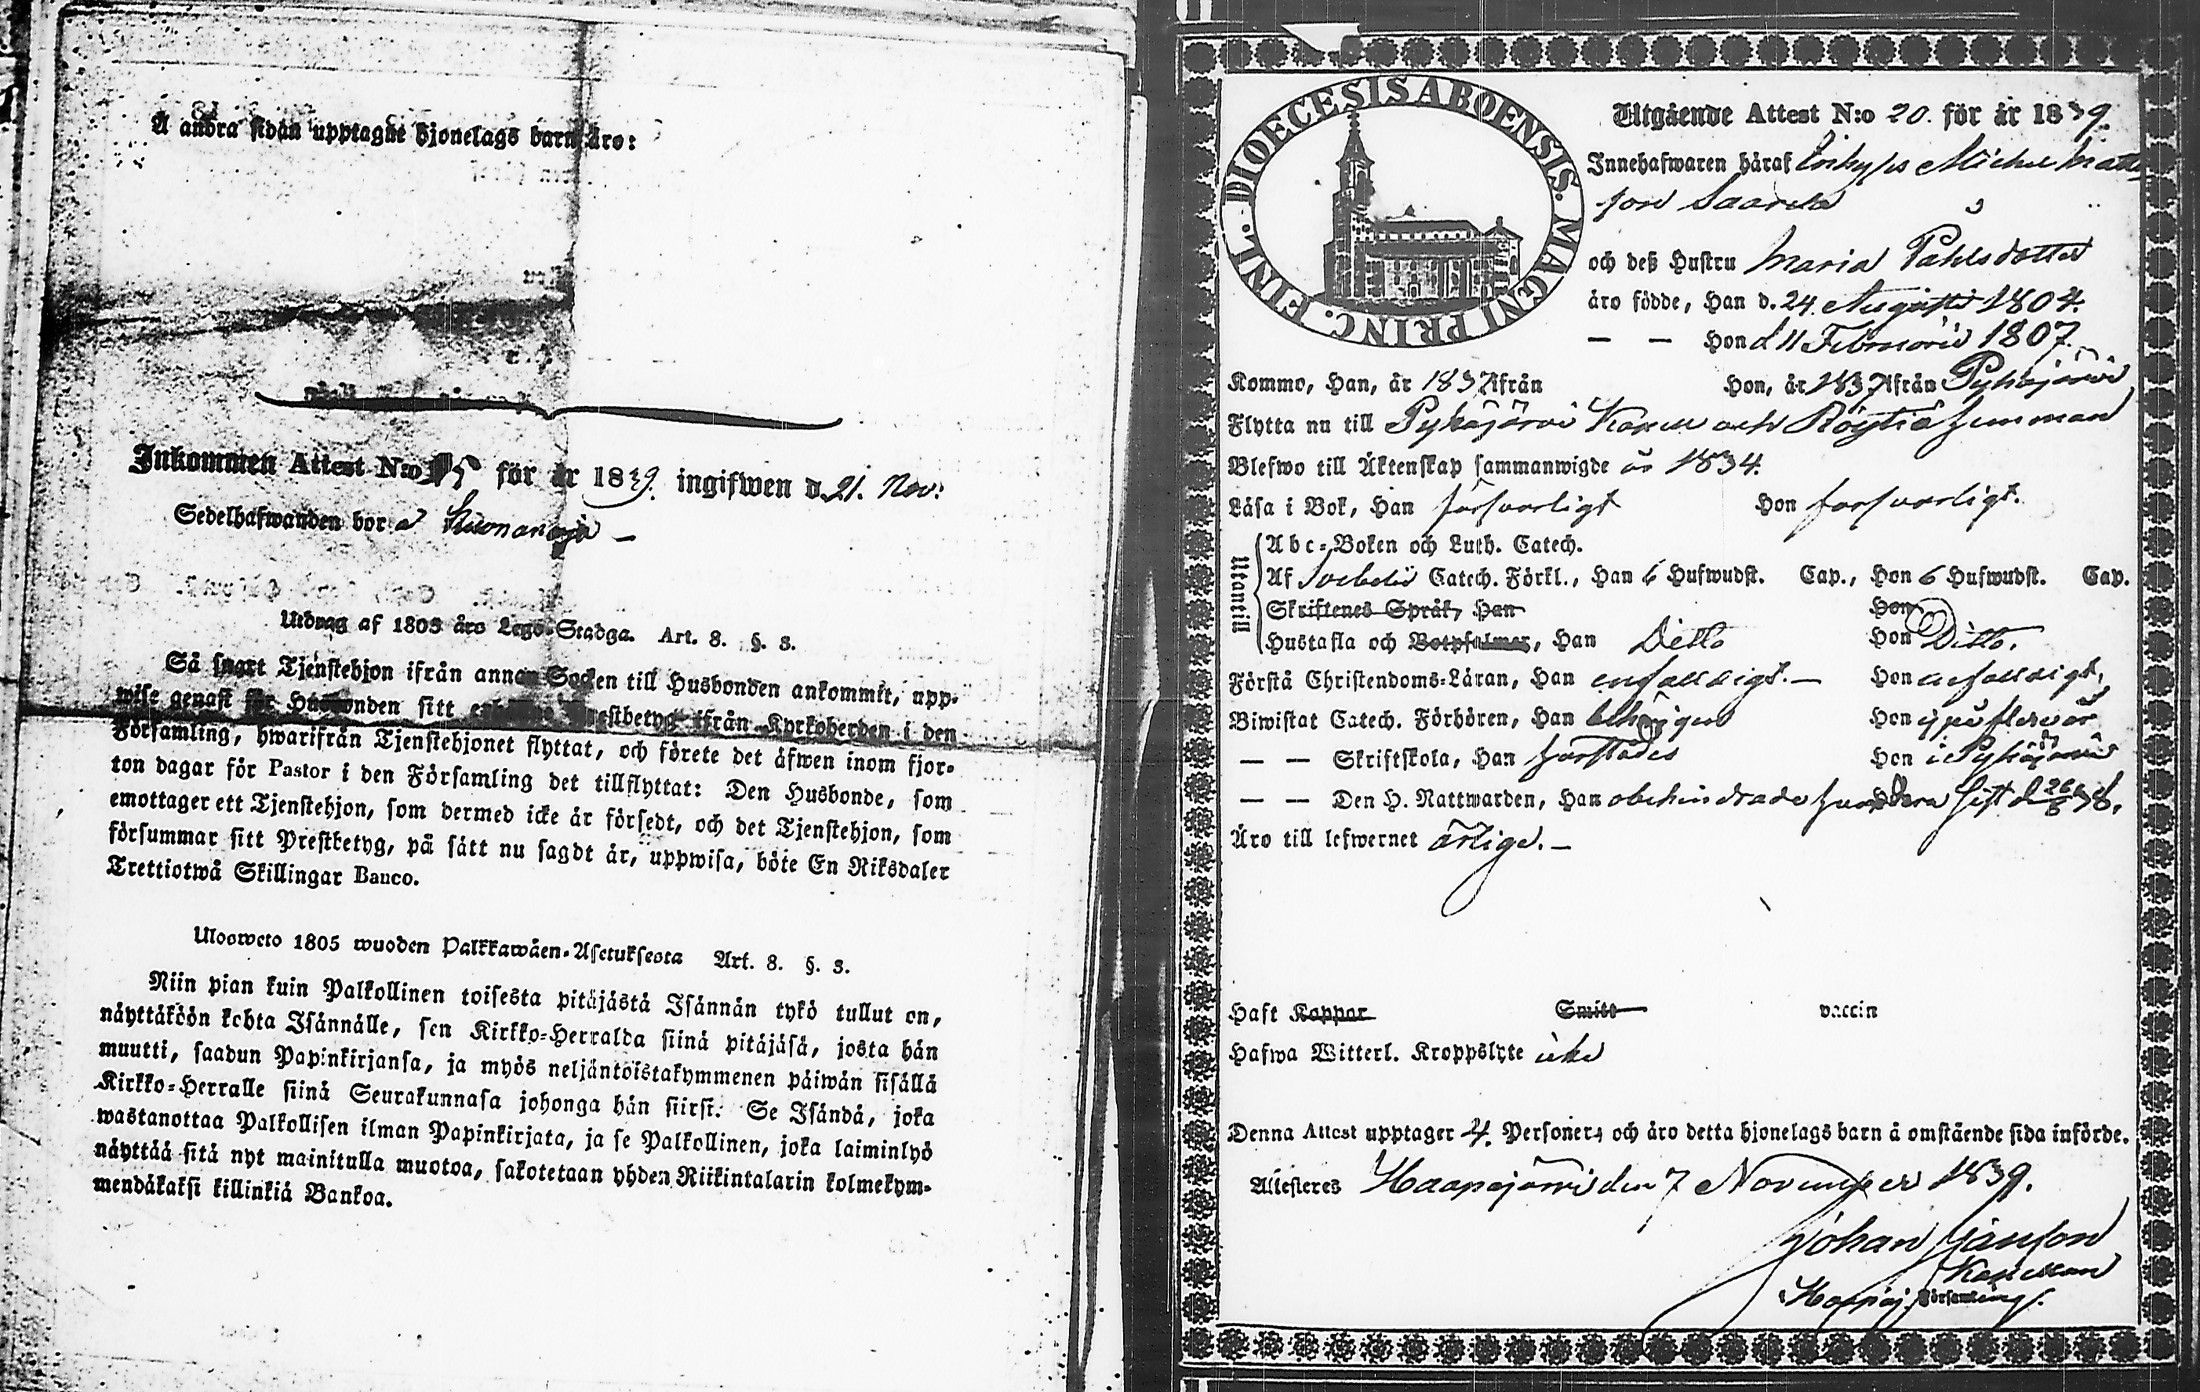 Å andra sidan upptagne hjonelags barn äro:
Inkommen Attest N:o för år 1839. ingifwen d. 21. Nov:
Sedelhafwanden bor å
Utdrag af 1805 års Lego-Stadga. Art. 8. §. 3.
Så snart Tjenstehjon ifrån annan Socken till Husbonden ankommit, upp-
wise genast för Husbonden sitt Prestbetyg ifrån Kyrkoherden i den
Församling, hwarifrån Tjenstehjonet flyttat, och förete det äfwen inom fjor-
ton dagar för Pastor i den Församling det tillflyttat: Den Husbonde, som
emottager ett Tjenstehjon, som dermed icke är försedt, och det Tjenstehjon, som
försummar sitt Prestbetyg, på sätt nu sagdt är, uppwisa, böte En Riksdaler
Trettiotwå Skillingar Banco.
Uloosweto 1805 wuoden Palkkawäen-Asetuksesta Art. 8. §. 3.
Niin pian kuin Palkollinen toisesta pitäjästä Isännän tykö tullut on,
näyttäköön kohta Isännälle, sen Kirkko-Herralda siinä pitäjäsä, josta hän
muutti, saadun Papinkirjansa, ja myös neljäntoistakymmenen päiwän sisällä
Kirkko-Herralle siinä Seurakunnasa johonga hän siirsi. Se Isändä, joka
wastanottaa Palkollisen ilman Papinkirjata, ja se Palkollinen, joka laiminlyö
näyttää sitä nyt mainitulla muotoa, sakotetaan yhden Riikintalarin kolmekym-
mendäkaksi killinkiä Bankoa.
DIOECESIS ABOENSIS. MAGNI PRINC. FINL.
Utgående Attest N:o 20. för år 1839.
Innehafwaren häraf Inhyses Michel Matts
son Saarela
och deß Hustru Maria Påhlsdotter
äro födde, Han d. 24 Augusti 1804.
— — Hon d 11 Februarii 1807.
Kommo, Han, år 1837 ifrån Hon, år 1837 ifrån Pyhäjärvi
Flytta nu till Pyhäjärvi Kapell och Röytiä hemman
Blefwo till Äktenskap sammanwigde år 1834.
Läsa i Bok, Han försvarligt Hon försvarligt.
Utantill
Abc-Boken och Luth. Catech.
Af Svebelii Catech. Förkl., Han 6 Hufwudst. Cap., Hon 6 Hufwudst. Cap.
Skriftenes Språk, Han Hon
Hustafla och Botpsalmer, Han Ditto Hon Ditto.
Förstå Christendoms-Läran, Han enfaldigt. — Hon enfaldigt,
Biwistat Catech. Förhören, Han behörigen Hon ej på flere år
— — Skriftskola, Han Hon i Pyhäjärvi
— — Den H. Nattwarden, Han obehindrade Hon sist d 26/8 38.
Äro till lefwernet ärlige. —
Haft Koppor Smitt vaccin
Hafwa Witterl. Kroppslyte icke
Denna Attest upptager 4. Personer, och äro detta hjonelags barn å omstående sida införde.
Attesteres Haapajärvi den 7 November 1839.
Johan Janson
Kapellan
Haapaj. Församling.